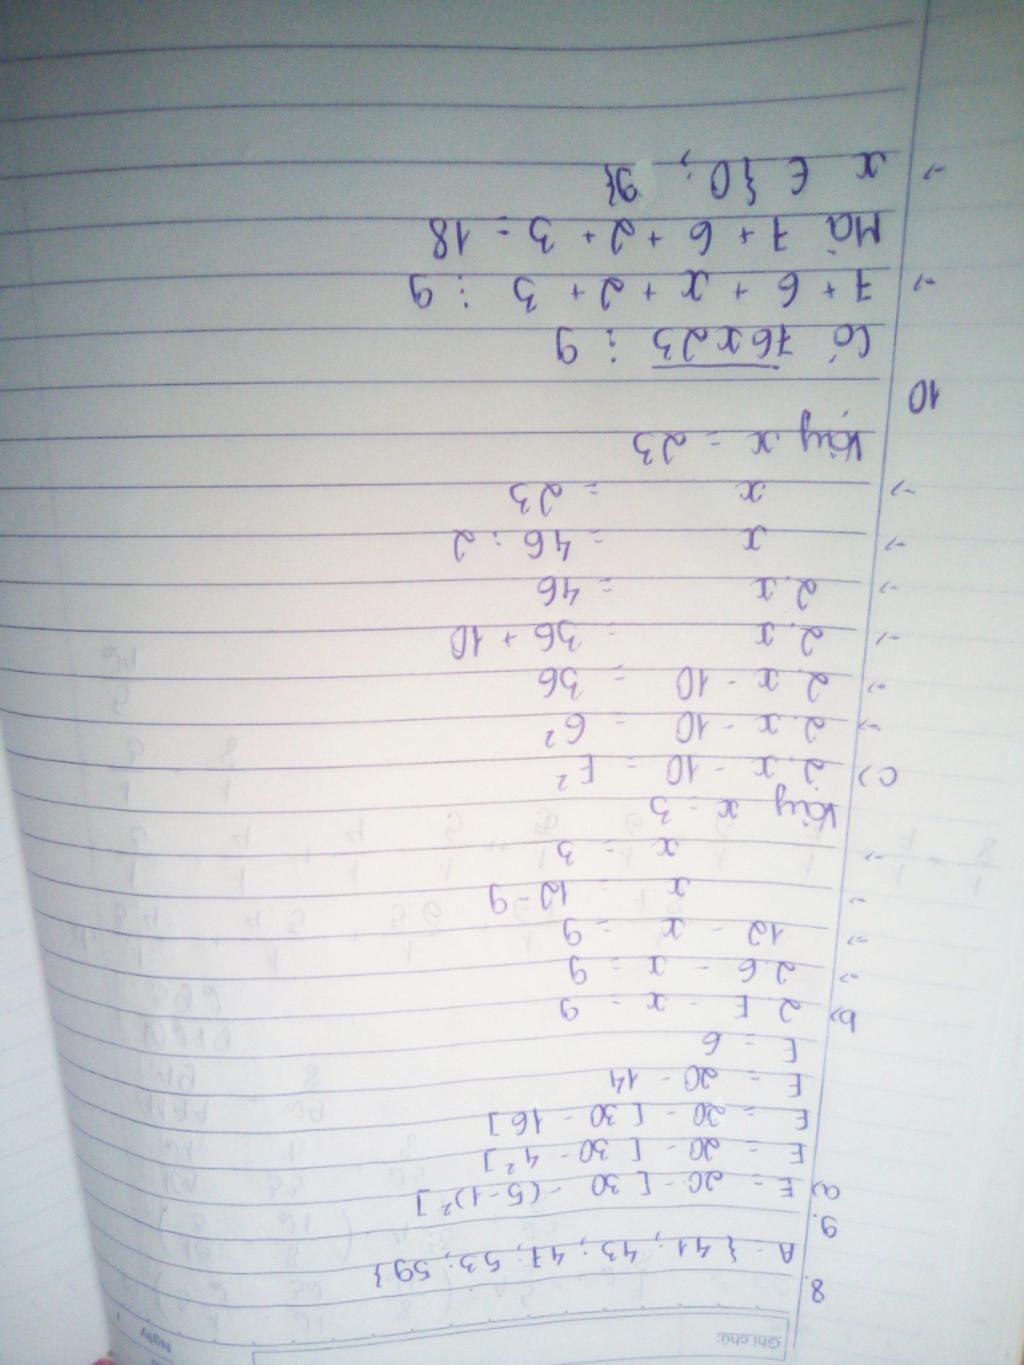 Ngày
Ghi chú:
8.
A = {41; 43; 47; 53; 59}
9.
a) E = 20 - [30 - (5-1)²]
E = 20 - [30 - 4²]
E = 20 - [30 - 16]
E = 20 - 14
E = 6
b) 2.E - x = 9
→ 2.6 - x = 9
→ 12 - x = 9
→ x = 12-9
→ x = 3
Vậy x = 3
c) 2.x - 10 = E²
→ 2.x - 10 = 6²
→ 2.x - 10 = 36
→ 2.x = 36 + 10
→ 2.x = 46
→ x = 46 : 2
→ x = 23
Vậy x = 23
10
Có 76x23 ⋮ 9
→ 7 + 6 + x + 2 + 3 ⋮ 9
Mà 7 + 6 + 2 + 3 = 18
→ x ∈ {0; 9}